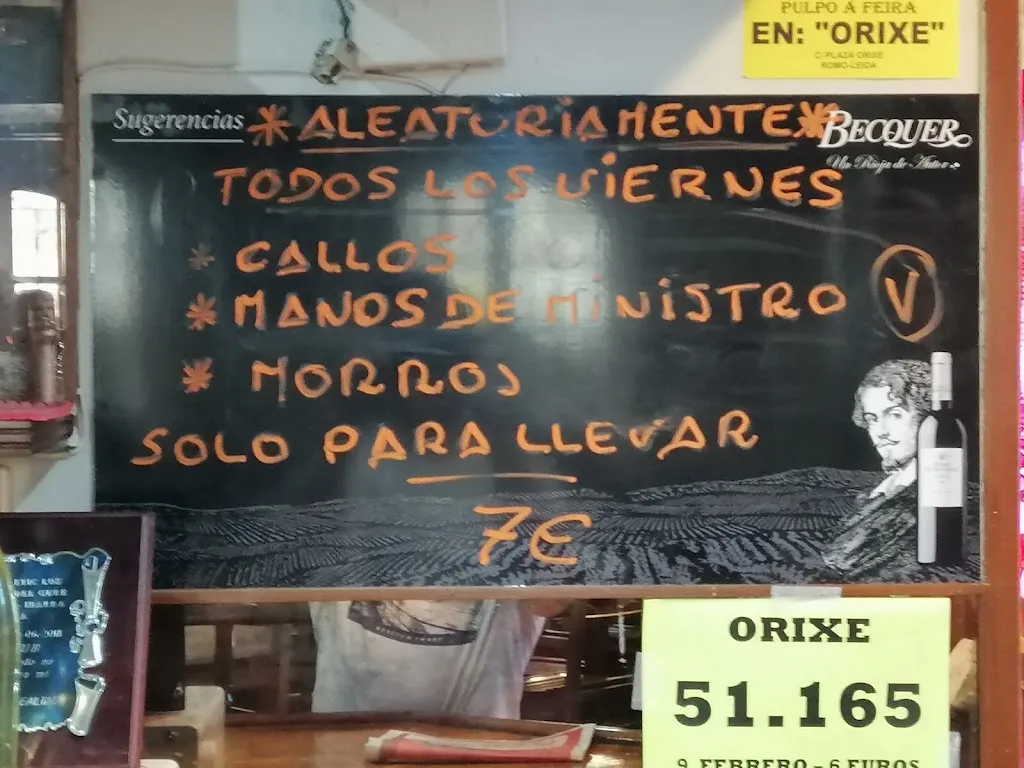 PULPO A FEIRA
EN: "ORIXE"
C/ PLAZA ORIXE
ROMO-LEIOA
Sugerencias
* ALEATURIAMENTE *
BECQUER
Un Rioja de Autor
TODOS LOS VIERNES
* CALLOS
* MANOS DE MINISTRO
V
* MORROS
SOLO PARA LLEVAR
7€
ORIXE
51.165
9 FEBRERO - 6 EUROS